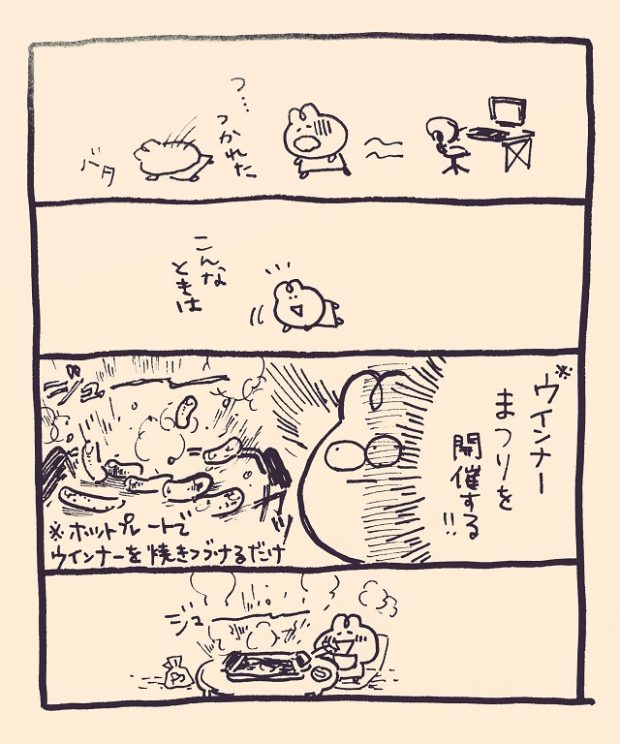 つ…
つかれた
バタ
こんな
ときは
※ウインナー
まつりを
開催する!!
ジュ
※ホットプレートで
ウインナーを焼きつづけるだけ
ジュ